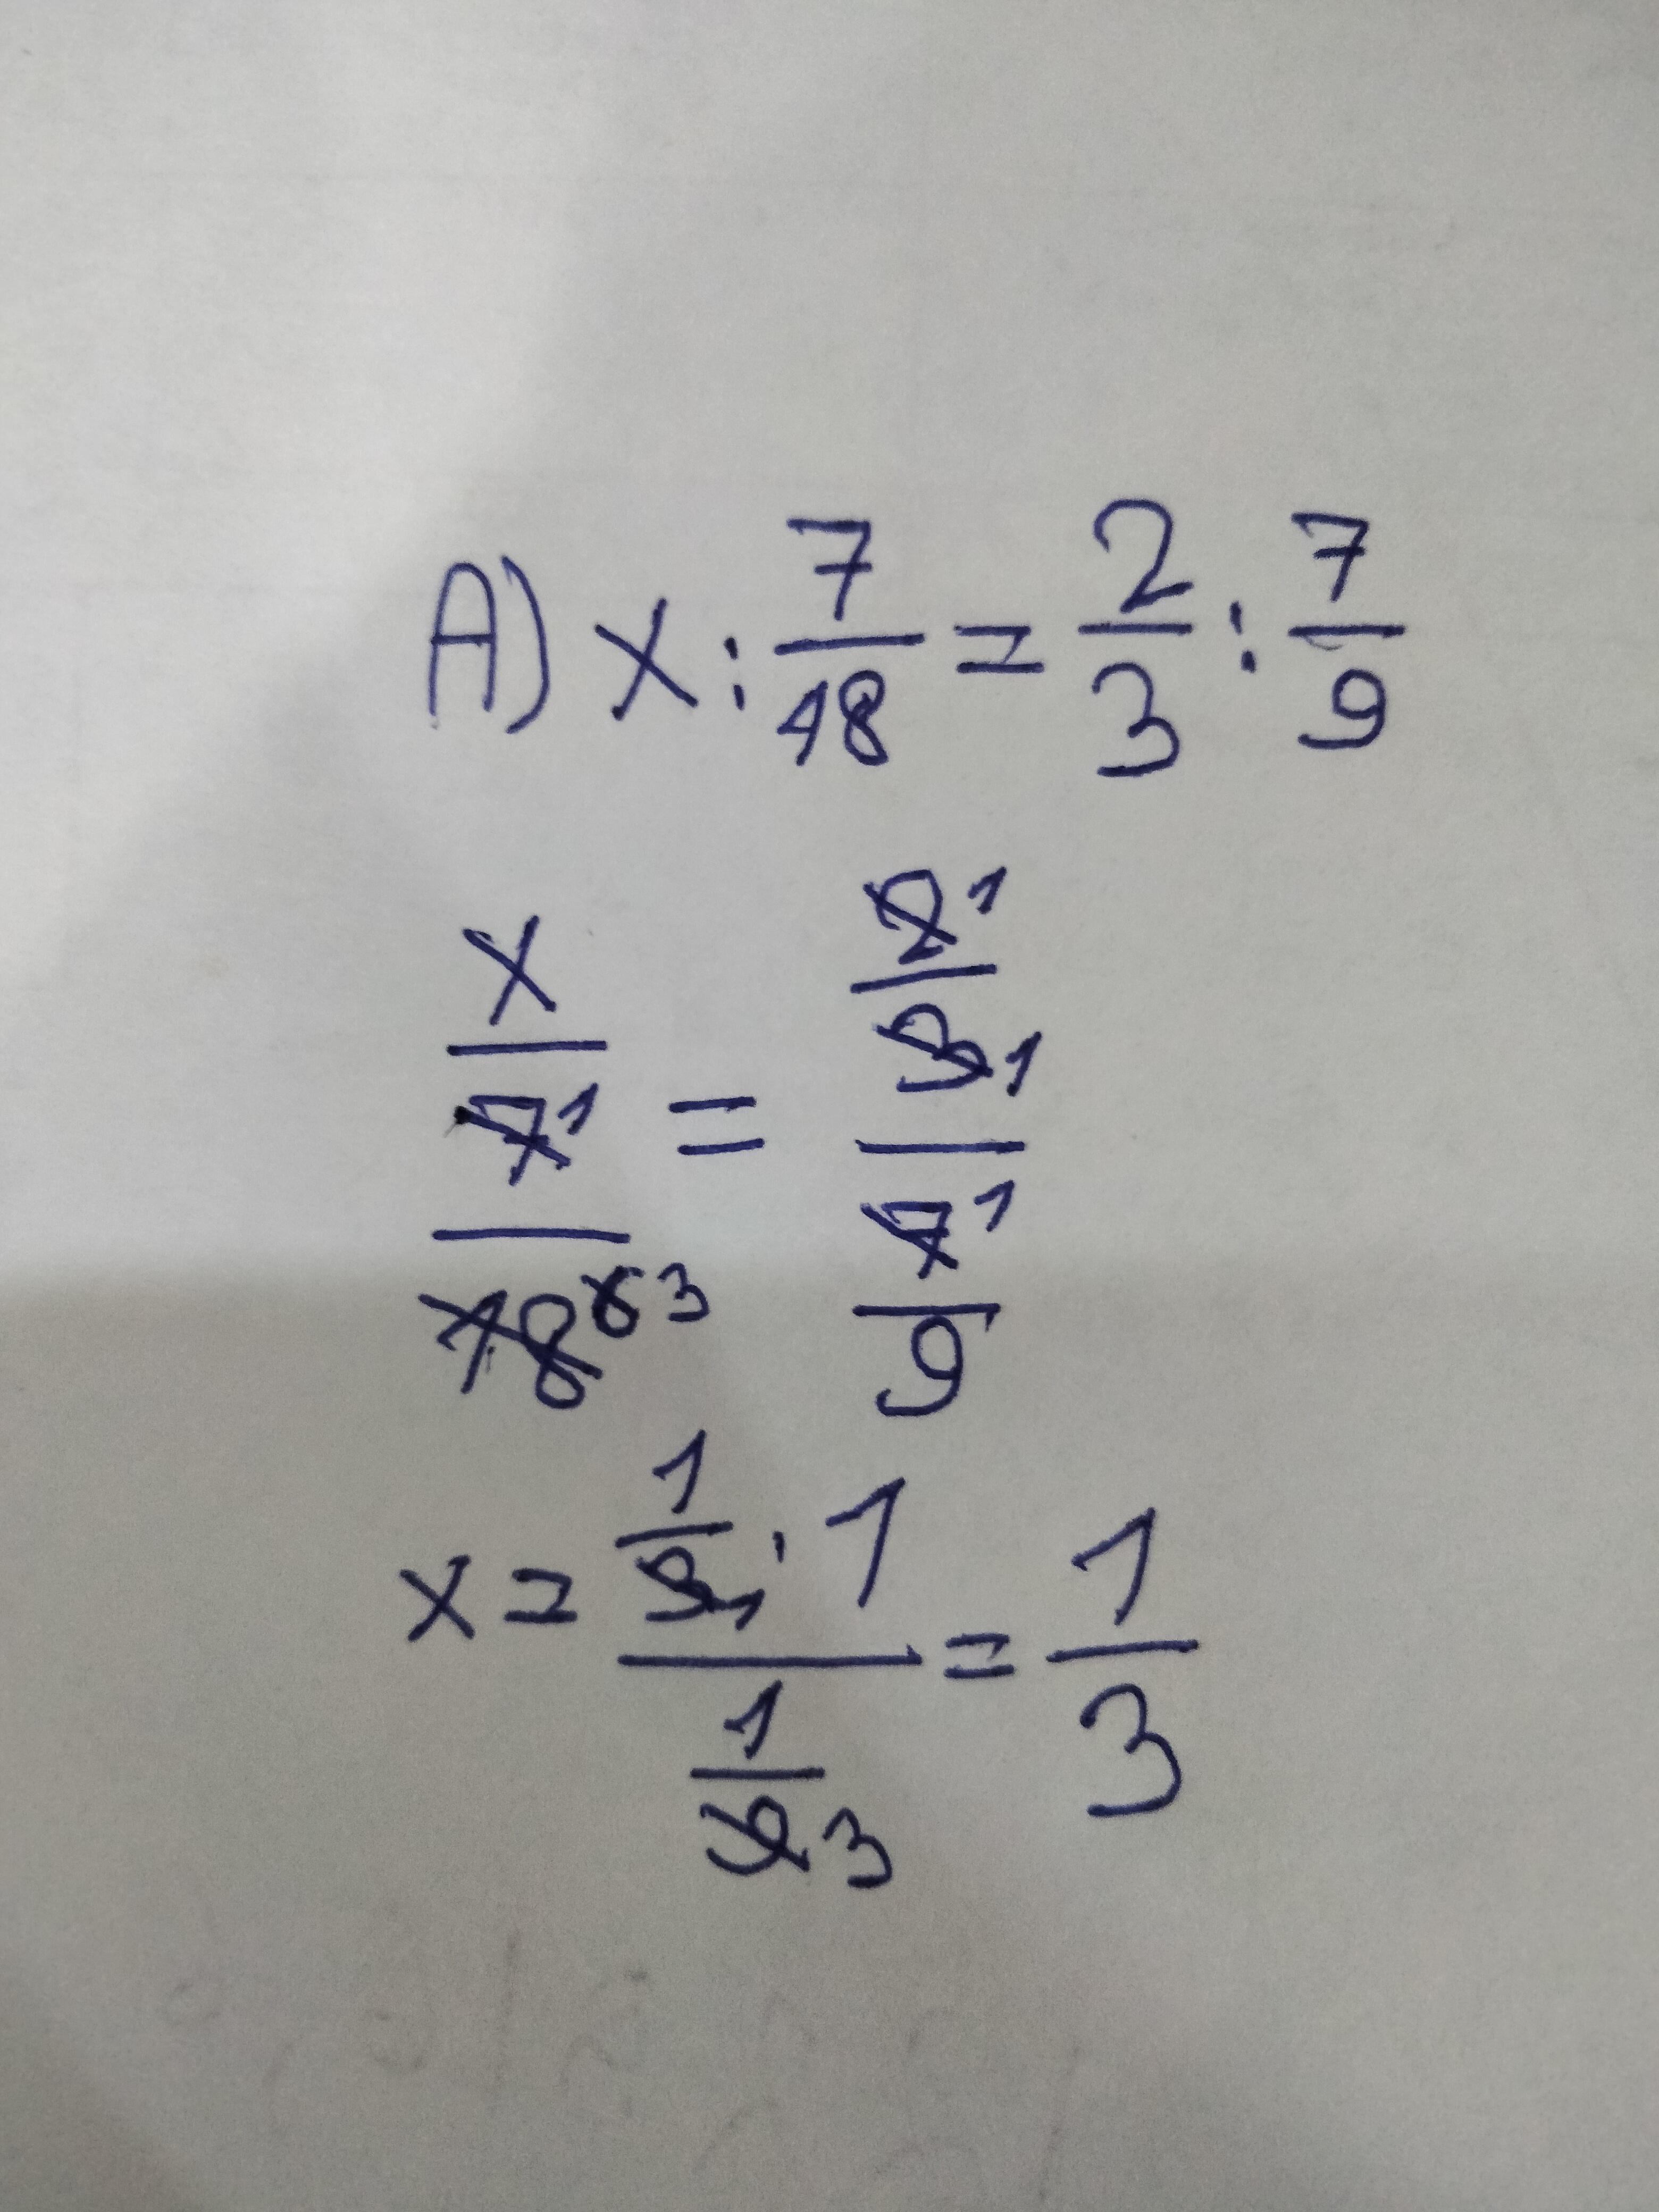 A) x : 7/18 = 2/3 : 7/9
x/(7 1/18 6 3) = (2 1/3 1)/(7 1/9)
x = (1/3 1 · 1)/(1/9 3) = 1/3